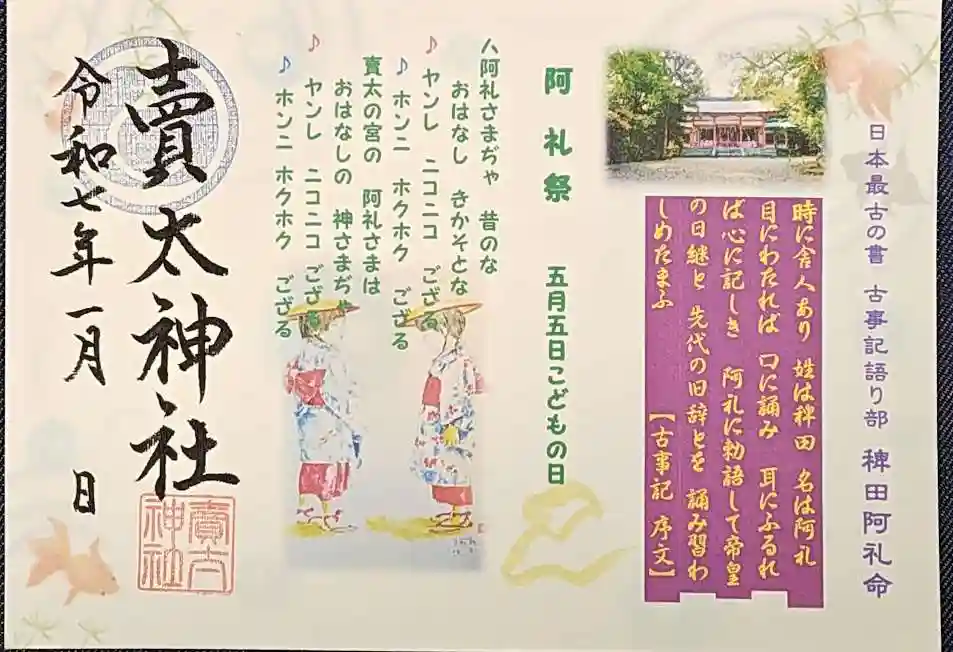 日本最古の書 古事記語り部 稗田阿礼命
時に舎人あり 姓は稗田 名は阿礼
目にわたれば 口に誦み 耳にふるれ
ば 心に記しき 阿礼に勅語して帝皇
の日継と 先代の旧辞とを 誦み習わ
しめたまふ 【古事記 序文】
阿礼祭 五月五日こどもの日
人阿礼さまぢゃ 昔のな
おはなし きかそとな
♪ ヤンレ ニコニコ ござる
♪ ホンニ ホクホク ござる
賣太の宮の 阿礼さまは
おはなしの 神さまぢゃ
♪ ヤンレ ニコニコ ござる
♪ ホンニ ホクホク ござる
賣太神社
賣太神社
令和七年一月 日